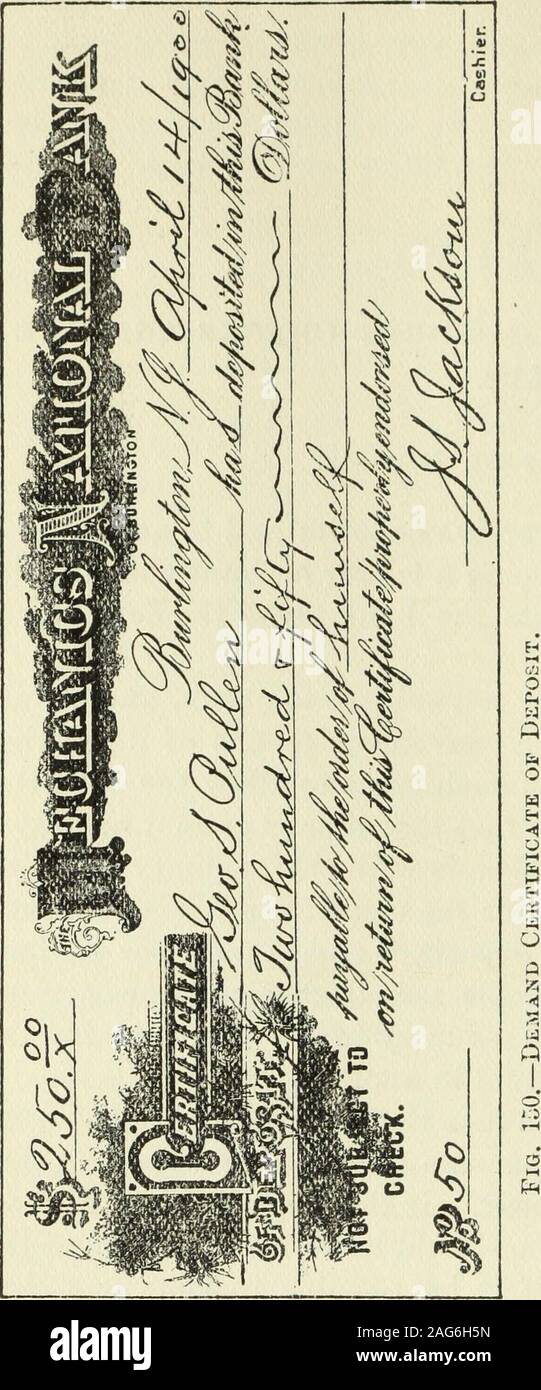 $ 250.00/x
THE MECHANICS NATIONAL BANK
OF BURLINGTON
Burlington, N.J. April 14/1900
CERTIFICATE OF DEPOSIT
Geo S. Pullen has deposited in this Bank
Two hundred & fifty Dollars.
payable to the order of himself
on return of this Certificate properly endorsed
NOT SUBJECT TO
CHECK.
No 50
J.S. Jackson
Cashier.
FIG. 150.—DEMAND CERTIFICATE OF DEPOSIT.
alamy
a
Image ID: 2AG6H5N
www.alamy.com